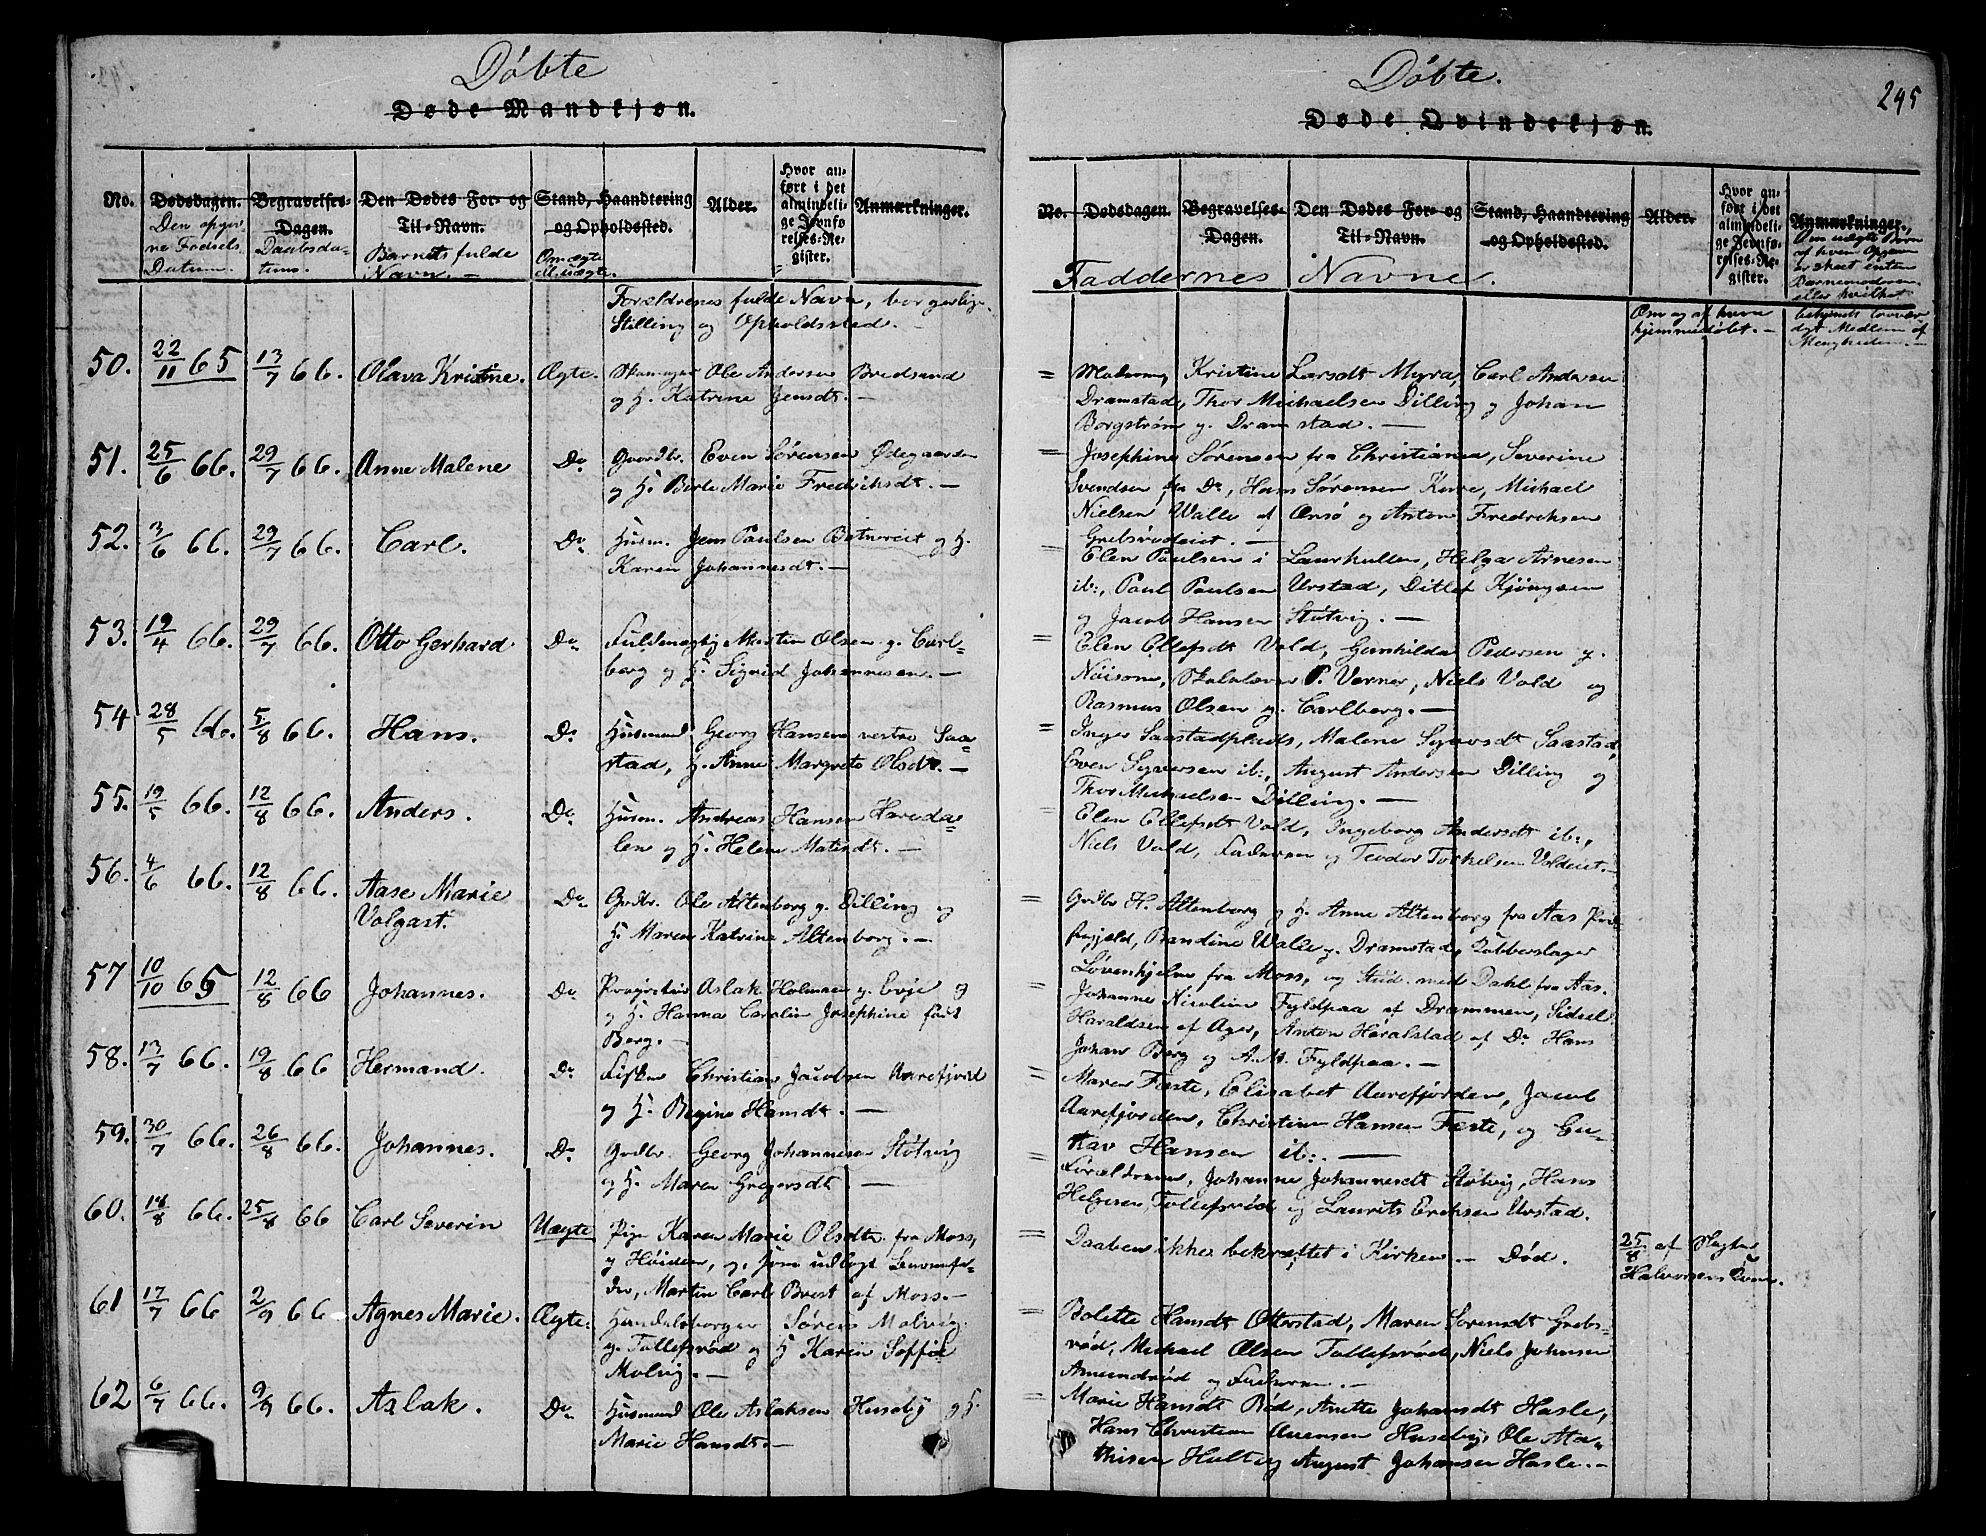 Døbte
Døde Mandkjøn.
No.
Dødsdagen.
Den opgiv
ne Fødsels
Datum.
Begravelses-
Dagen.
Daabsda-
tum.
Den Dødes For- og
Til-Navn.
Barnets fulde
Navn. —
Stand, Haandtering
og Opholdssted.
Om ægte
ell. uægte.
Alder.
Hvor an-
ført i det
almindeli-
ge Jevnfø-
relses-Re-
gister.
Anmærkninger.
Forældrenes fulde Navn, borgerlige
Stilling og Opholdssted. —
50. 22/11 65 13/7 66. Olava Kristine. Ægte. Ole Andersen Bredsand
og H. Katrine Jensdt. —
51. 25/6 66. 29/7 66. Anne Malene Do Gaardbr. Even Sørensen Ødegaarden
og H. Berte Marie Fredriksdt. —
52. 3/6 66. 29/7 66. Carl. Do Husm. Jens Paulsen Botnereiet og H.
Karen Johannesdt. —
53. 19/4 66. 29/7 66. Otto Gerhard Do Fuldmægtig Morten Olsen g. Carl-
berg og H. Sigrid Johannesen. —
54 28/5 66. 5/8 66. Hans. Do Husmand Georg Hansen vestre Saa-
stad, H. Anne Margrete Olsdt. —
55. 19/5 66. 12/8 66. Anders. Do Husm. Andreas Hansen Hareda-
len og H. Helene Matisdt. —
56. 4/6 66. 12/8 66. Aase Marie Do Grdbr. Ole Altenborg g. Dilling og
Volgast. H. Maren Katrine Altenborg. —
57 10/10 65 12/8 66 Johannes. Do Aslak Holmsen g. Evje og
og H. Hanna Carolin Josephine født
Berg. —
58. 13/7 66. 19/8 66 Hermand. Do Fisker Christian Jacobsen Aarefjord
og H. Regine Hansdt. —
59. 30/7 66. 26/8 66. Johannes. Do Grdbr. Georg Johannesen Støtvig
og H. Maren Gregersdt —
60. 18/8 66. 25/8 66 Carl Severin Uægte Pige Karen Marie Olsdtr. fra Moss,
og Høiden, og som udlagt Barnefa-
der, Martin Carl Brest af Moss. —
61 17/7 66 2/9 66 Agnes Marie. Ægte. Handelsborger Sørens Molvig.
g. Tollefsrød og H Karen Soffie
Molvig. —
62 6/7 66. 9/9 66. Aslak. Do Husmand Ole Aslaksen Huseby og H.
Marie Hansdt. —
Døbte.
295
Døde Qvindekjøn.
No.
Dødsdagen.
Begravelses-
Dagen.
Den Dødes For- og
Til-Navn.
Stand, Haandtering
og Opholdssted.
Alder.
Hvor an-
ført i det
almindeli-
ge Jevnfø-
relses-Re-
gister.
Anmærkninger.
Om uægte Barn
af hvem Opgaven
er skeet enten
Barnemoderen
eller hvilket
bekjendt trovær-
digt Medlem af
Menigheden. —
Faddernes Navne.
Om og af hvem
hjemmedøbt. —
= Kristine Larsdt Myra, Carl Andersen
Dramstad, Thor Michaelsen Dilling og Johan
Borgstrøm g. Dramstad. —
= Josephine Sørensen fra Christiania, Severine
Svendsen fra Do, Hans Sørensen Kure, Michael
Nielsen Walle af Onsø og Anton Fredriksen
Grebsrødeiet. —
= Elen Paulsen i Laurkullen, Helga Arnesen
ib:, Paul Paulsen Urstad, Ditlef Kjøngsen
og Jacob Hansen Støtvig. —
= Elen Ellefsdt Vold, Gunhilda Pedersen g.
Nøisom, Skolelærer P. Verner, Niels Vold og
Rasmus Olsen g. Carlberg. —
= Inger Saastadplads, Malene Syversdt Saastad,
Even Syversen ib:, August Andersen Dilling og
Thor Michaelsen Dilling. —
= Elen Ellefsdt Vold, Ingeborg Andersdt ib:,
Niels Vold, Faderen og Teodor Torkelsen Voldeiet. —
= Grdbr H. Altenborg og H. Anne Altenborg fra Aas Præ-
stegjeld, Randine Walle g. Dramstad, Kobberslager
Løvenhjelm fra Moss, og Stud. med Dahl fra Aas.
= Johanne Nicoline Fyldpaa af Drammen, Sidsel
Haraldsen af Ager, Anton Haralstad af Do Hans
Johan Berg og A. M. Fyldpaa. —
= Maren Feste, Elisabet Aarefjorden, Jacob
Aarefjorden, Christian Hansen Feste, og Gu-
stav Hansen ib:. —
= Forældrene, Johanne Johannesdt Støtvig, Hans
Helgesen Tollefsrød og Laurits Eriksen Urstad.
= Daaben ikke bekræftet i Kirken. — Død. 25/8 af
Halvorsens
= Bolette Hansdt Otterstad, Maren Sørensdt Grebs-
rød, Michael Olsen Tollefsrød, Niels Johnsen
Amundrød og Faderen. —
= Marie Hansdt Rød, Anette Johansdt Hasle,
Hans Christian Evensen Huseby, Ole Ma-
thisen Hultvig August Johansen Hasle. —